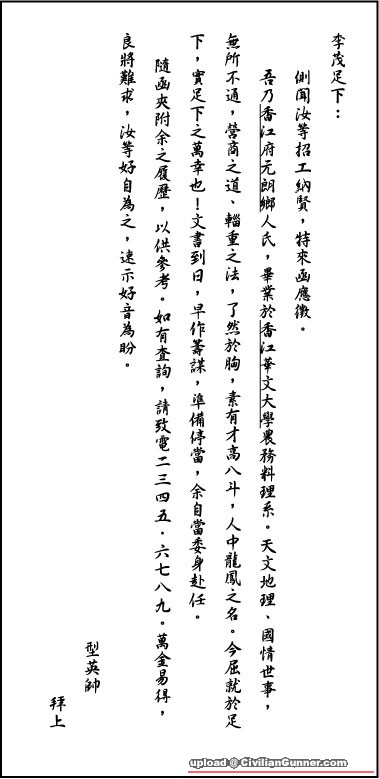 李茂足下：
側聞汝等招工納賢，特來函應徵。
吾乃香江府元朗鄉人氏，畢業於香江華文大學農務料理系。天文地理、國情世事，
無所不通，營商之道、輜重之法，了然於胸，素有才高八斗，人中龍鳳之名。今屈就於足
下，實足下之萬幸也！文書到日，早作籌謀，準備停當，余自當委身赴任。
隨函夾附余之履歷，以供參考。如有查詢，請致電二三四五．六七八九。萬金易得，
良將難求，汝等好自為之，速示好音為盼。
型英帥
拜上
upload @ CivilianGunner.com